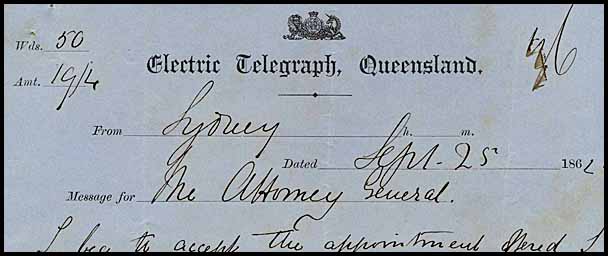 Wds. 50
Amt. 19/4
Electric Telegraph, Queensland.
From Sydney h. m.
Dated Sept. 25 1862
Message for The Attorney General.
I beg to accept the appointment offered